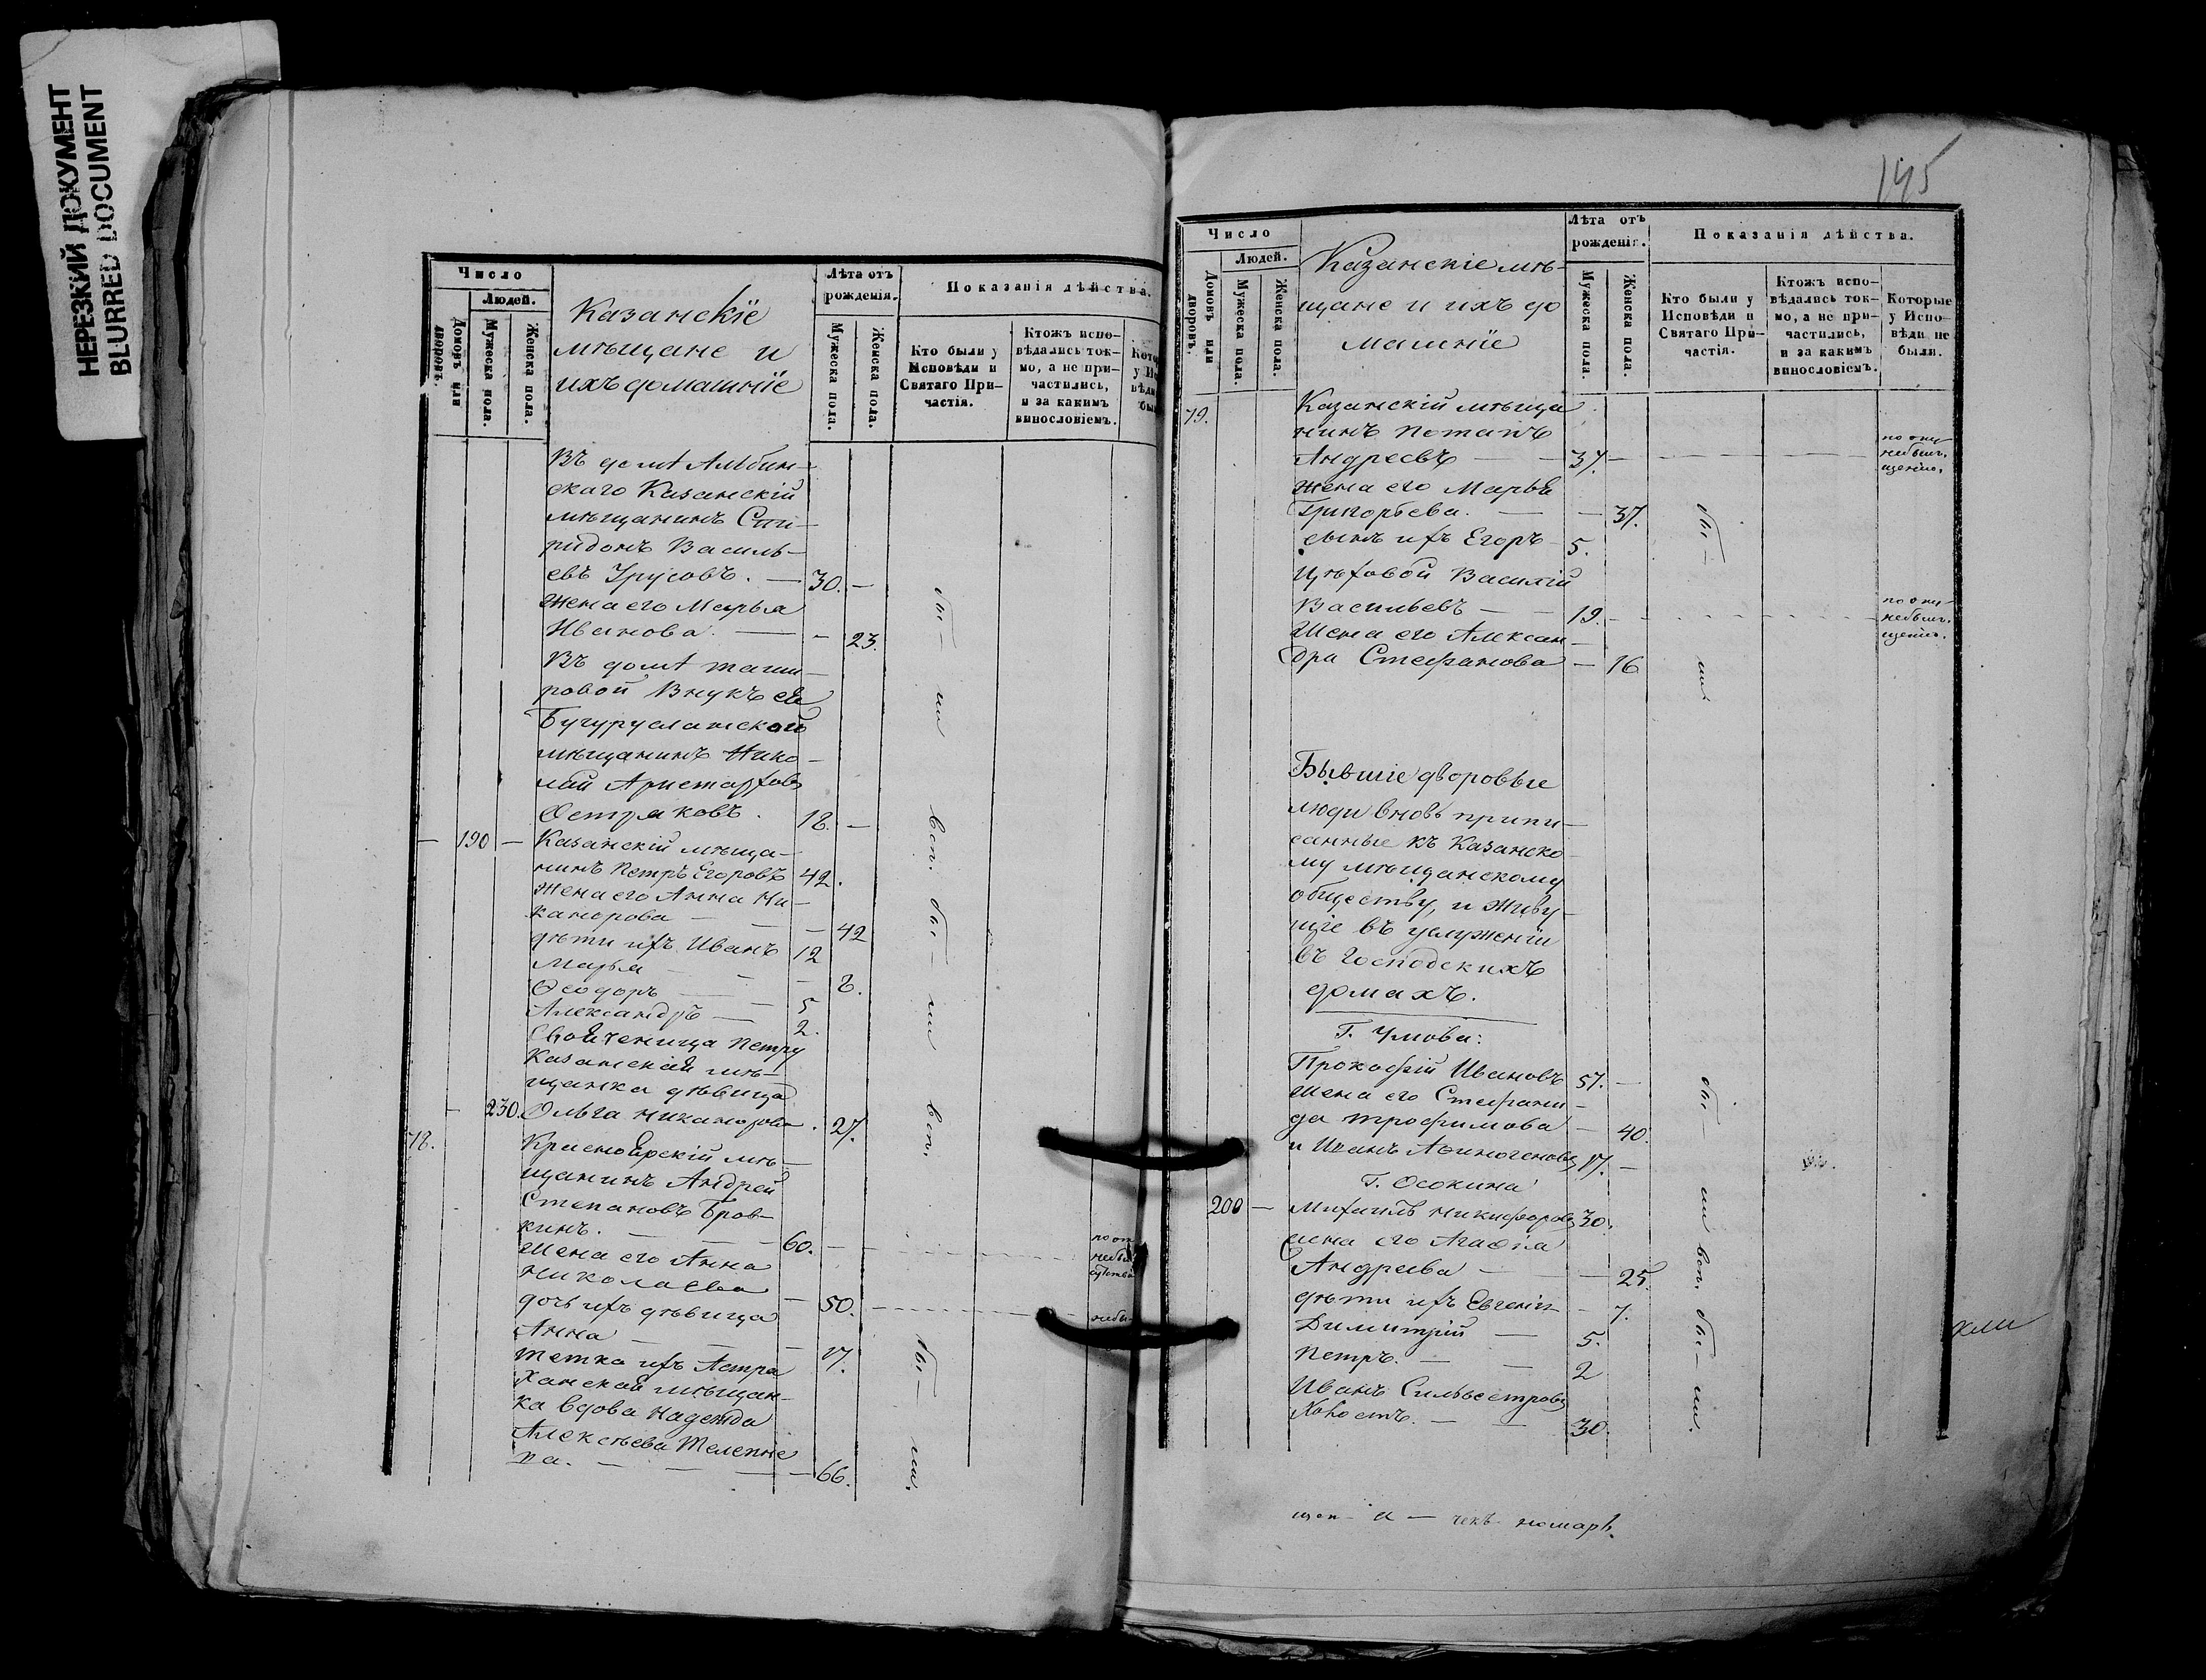 НЕРЕЗКИЙ ДОКУМЕНТ
BLURRED DOCUMENT
Число
Людей.
Домовъ или дворовъ.
Мужеска пола.
Женска пола.
Казанскіе
мѣщане и
ихъ домашніе
Лѣта отъ
рожденія.
Мужеска пола.
Женска пола.
Показанія дѣйства.
Кто были у
Исповѣди и
Святаго При-
частія.
Ктожъ испо-
вѣдались ток-
мо, а не при-
частились,
и за какимъ
винословіемъ.
Въ домѣ Альбин-
скаго Казанскій
мѣщанинъ Спи-
ридонъ Василь-
евъ Урусовъ. — 30. —
Жена его Марья
Иванова. — - 23.
Въ домѣ
ровой Внукъ ея
Бугурусланской
мѣщанинъ Нико-
лай Аристарховъ
Остряковъ. 18. —
— 190 — Казанскій мѣща-
нинъ Петръ Егоровъ 42.
Жена его Анна Ни-
канорова — — 42
дѣти ихъ Иванъ 12
Марья — - 8.
Ѳеодоръ — — 5
Александръ — 2.
Свояченица Петру
Казанская мѣ-
щанка дѣвица
— 230. Ольга Никанорова. 27.
78. Красноярскій мѣ-
щанинъ Андрей
Степановъ Бров-
кинъ. — — 60. —
Жена его Анна
Николаева — 50.
дочь ихъ дѣвица
Анна — — 17.
Тетка ихъ Астра
ханская мѣщан-
ка вдова Надежда
Алексѣева Телепне
ва. — — — 66.
бы — ли
всп. бы — ли
всп.
бы — ли.
145
Число
Людей.
Домовъ или дворовъ.
Мужеска пола.
Женска пола.
Казанскіе мѣ-
щане и ихъ до
машніе
Лѣта отъ
рожденія.
Мужеска пола.
Женска пола.
Показанія дѣйства.
Кто были у
Исповѣди и
Святаго При-
частія.
Ктожъ испо-
вѣдались ток-
мо, а не при-
частились,
и за какимъ
винословіемъ.
Которые
у Испо-
вѣди не
были.
79. Казанскій мѣща
нинъ Потапъ
Андреевъ — — 37. —
по опу-
небыл.
щенію.
Жена его Марья
Григорьева. — — 37.
сынъ ихъ Егоръ 5.
Цѣховой Василій
Васильевъ — — 19. —
по опу-
небыл.
щенію.
Жена его Алексан-
дра Стефанова — 16
бы —
ли
Бывшіе дворовые
люди вновь припи-
санные къ Казанско
му мѣщанскому
обществу, и живу-
щіе въ услуженіи
въ Господскихъ
домахъ.
Г. Умова:
Прокофій Ивановъ 57. —
Жена его Стефани-
да Трофимова — 40.
и Иванъ Аѳиногеновъ 17. —
Г. Осокина
200 — Михаилъ Никифоровъ 30.
Жена его Агаѳія
Андреева — — 25.
дѣти ихъ Евгенія — 7.
Димитрій — 5.
Петръ. — — 2
Иванъ Сильвестровъ
Холостъ. — — 30.
бы — ли всп. бы — ли.